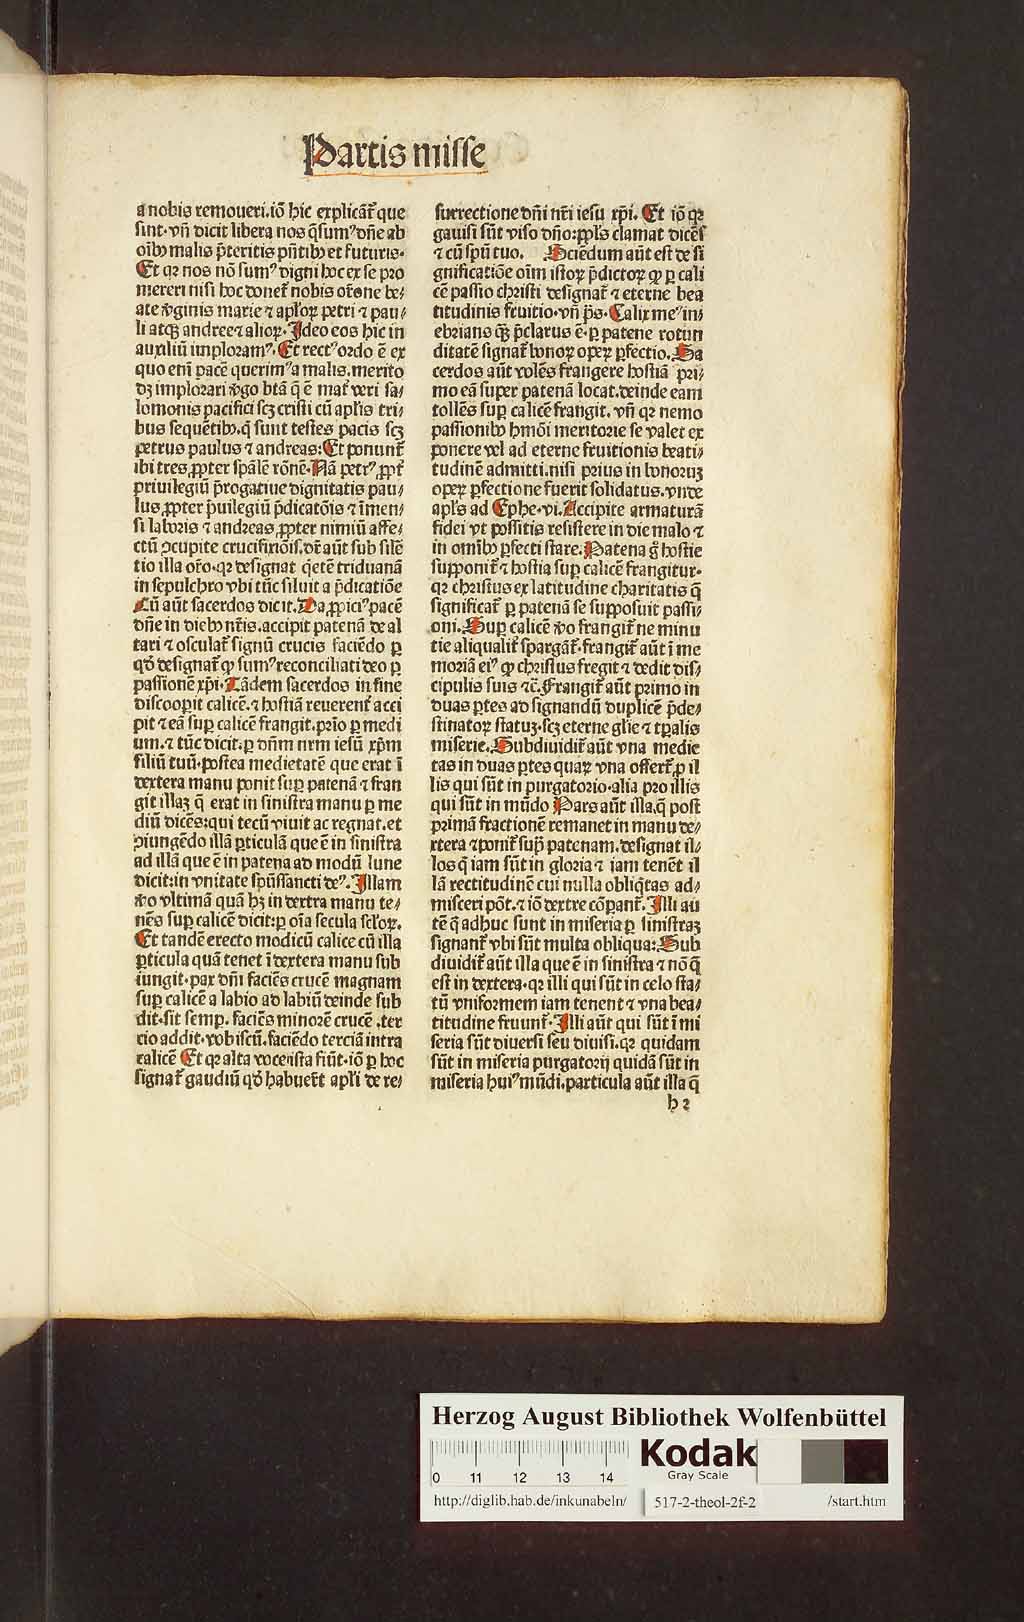 Partis misse
a nobis remoueri.iō hic explicāt᷑ que
sint·vn̄ dicit libera nos q̄sumꝰ dn̄e ab
oībꝰ malis p̄teritis pn̄tibꝰ et futuris·
Et qꝛ nos nō sumꝰ digni hoc ex se pro
mereri nisi hoc donet᷑ nobis or̄one be⸗
ate v̓ginis marie ⁊ apl̓oꝝ petri ⁊ pau⸗
li atqꝫ andree ⁊ alioꝝ·Ideo eos hic in
auxiliū imploramꝰ·Et rectꝰ ordo ē ex
quo eni᷑ pacē querimꝰ a malis.merito
dꝫ implorari v̓go btā q̄ ē mat᷑ veri sa⸗
lomonis pacifici scꝫ cristi cū apl̓is tri⸗
bus sequētibꝰ.q̄ sunt testes pacis scꝫ
petrus paulus ⁊ andreas:Et ponunt᷑
ibi tres,ꝓpter spālē rōnē·Nā petrꝰ,ꝓpt᷑
priuilegiū p̄rogatiue dignitatis pau⸗
lus,ꝓpter p̓uilegiū p̄dicatōis ⁊ īmen⸗
si laboris ⁊ andreas,ꝓpter nimiū affe⸗
ctū ꝯcupite crucifixiōis.dr̄ aūt sub silē
tio illa or̄o·qꝛ designat q̄etē triduanā
in sepulchro vbi tūc siluit a p̄dicatiōe
Cū aūt sacerdos dicit.Da,ꝓpiciꝰ pacē
dn̄e in diebꝰ nr̄is.accipit patenā de al
tari ⁊ osculat᷑ signū crucis faciēdo ꝑ
qd̓ designat᷑ ꝙ sumꝰ reconciliati deo ꝑ
passionē xp̄i·Tādem sacerdos in fine
discooꝑit calicē.⁊ hostiā reuerent᷑ acci
pit ⁊ eā suꝑ calicē frangit.prīo ꝑ medi
um.⁊ tūc dicit.ꝑ dn̄m nrm iesū xp̄m
filiū tuū·postea medietatē que erat ī
dextera manu ponit suꝑ patenā ⁊ fran
git illaꝫ q̄ erat in sinistra manu ꝑ me
diū dicēs:qui tecū viuit ac regnat.et
ꝯiungēdo illā ꝑticulā que ē in sinistra
ad illā que ē in patena ad modū lune
dicit:in vnitate sp̄ussancti deꝰ.Illam
v̓o vltimā quā hꝫ in dextra manu te⸗
nēs suꝑ calicē dicit:ꝑ oīa secula scl̓oꝝ.
Et tandē erecto modicū calice cū illa
ꝑticula quā tenet ī dextera manu sub
iungit·pax dn̄i faciēs crucē magnam
suꝑ calicē a labio ad labiū deinde sub
dit·sit semꝑ. faciēs minorē crucē .ter
cio addit·vobiscū.faciēdo terciā intra
calicē Et qꝛ alta voce ista fiūt·iō ꝑ hoc
signat᷑ gaudiū qd̓ habuer̄t apl̓i de re⸗
surrectione dn̄i nr̄i iesu xp̄i. Et iō qꝛ
gauisi sūt viso dn̄o:ppl̓s clamat dicēs
⁊ cū sp̄u tuo. Sciendum aūt est de si
gnificatiōe oīm istoꝝ p̄dictoꝝ ꝙ ꝑ cali
cē passio christi designat᷑ ⁊ eterne bea
titudinis fruitio·vn̄ p̄s·Calix meꝰ in⸗
ebrians q̄ꝫ p̄clarus ē·ꝑ patene rotun
ditatē signat᷑ bonoꝝ opeꝝ ꝑfectio.Sa
cerdos aūt volēs frangere hostiā pri⸗
mo eā super patenā locat.deinde eam
tollēs suꝑ calicē frangit. vn̄ qꝛ nemo
passionibꝰ hmōi meritorie se valet ex
ponere vel ad eterne fruitionis beati⸗
tudinē admitti.nisi prius in bonoruꝫ
opeꝝ ꝑfectione fuerit solidatus.vnde
apl̓s ad Ephe·vi.Accipite armaturā
fidei vt possitis resistere in die malo ⁊
in omībꝰ ꝑfecti stare.Patena g̊ hostie
supponit᷑ ⁊ hostia suꝑ calicē frangitur·
qꝛ christus ex latitudine charitatis q̄
significat᷑ ꝑ patenā se supposuit passi⸗
oni.Suꝑ calicē v̓o frangit᷑ ne minu
tie aliqualit᷑ spargāt᷑·frangit᷑ aūt ī me
moriā eiꝰ ꝙ christus fregit ⁊ dedit dis⸗
cipulis suis ⁊c̄.Frangit᷑ aūt primo in
duas ꝑtes ad signandū duplicē p̄de⸗
stinatoꝝ statuꝫ·scꝫ eterne glīe ⁊ tꝑalis
miserie.Subdiuidit᷑ aūt vna medie
tas in duas ꝑtes quaꝝ vna offert᷑,ꝓ il
lis qui sūt in purgatorio·alia pro illis
qui sūt in mūdo Pars aūt illa,q̄ post
primā fractionē remanet in manu de⸗
xtera ⁊ ponit᷑ sup̄ patenam.designat il⸗
los q̄ iam sūt in gloria ⁊ iam tenēt il
lā rectitudinē cui nulla obliq̄tas ad⸗
misceri pōt.⁊ iō dextre cōparant᷑.Illi au
tē q̄ adhuc sunt in miseria ꝑ sinistraꝫ
signant᷑ vbi sūt multa obliqua:Sub
diuidit᷑ aūt illa que ē in sinistra ⁊ nō q̄
est in dextera·qꝛ illi qui sūt in celo sta⸗
tū vniformem iam tenent ⁊ vna bea⸗
titudine fruunt᷑·Illi aūt qui sūt ī mi
seria sūt diuersi seu diuisi.qꝛ quidam
sūt in miseria purgatorij quidā sūt in
miseria huiꝰ mūdi.particula aūt illa q̄
h 2
Herzog August Bibliothek Wolfenbüttel
Kodak
Gray Scale
0 11 12 13 14
http://diglib.hab.de/inkunabeln/ 517-2-theol-2f-2 /start.htm